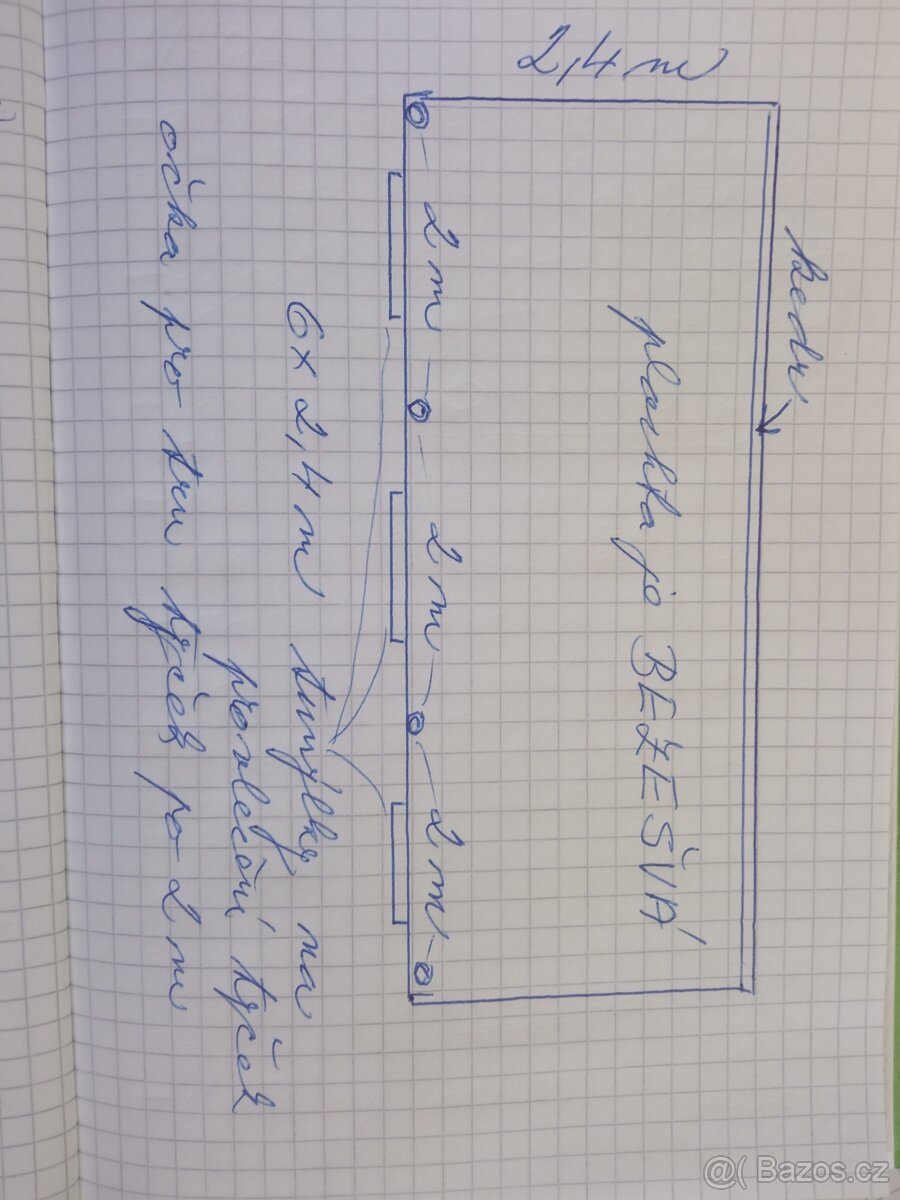 2,4 m
kedr
plachta je BEZEŠVÁ
2 m
2 m
2 m
6 x 2,4 m tunýlky na
provlečení tyček
očka pro tru tyček po 2 m
@( Bazos.cz